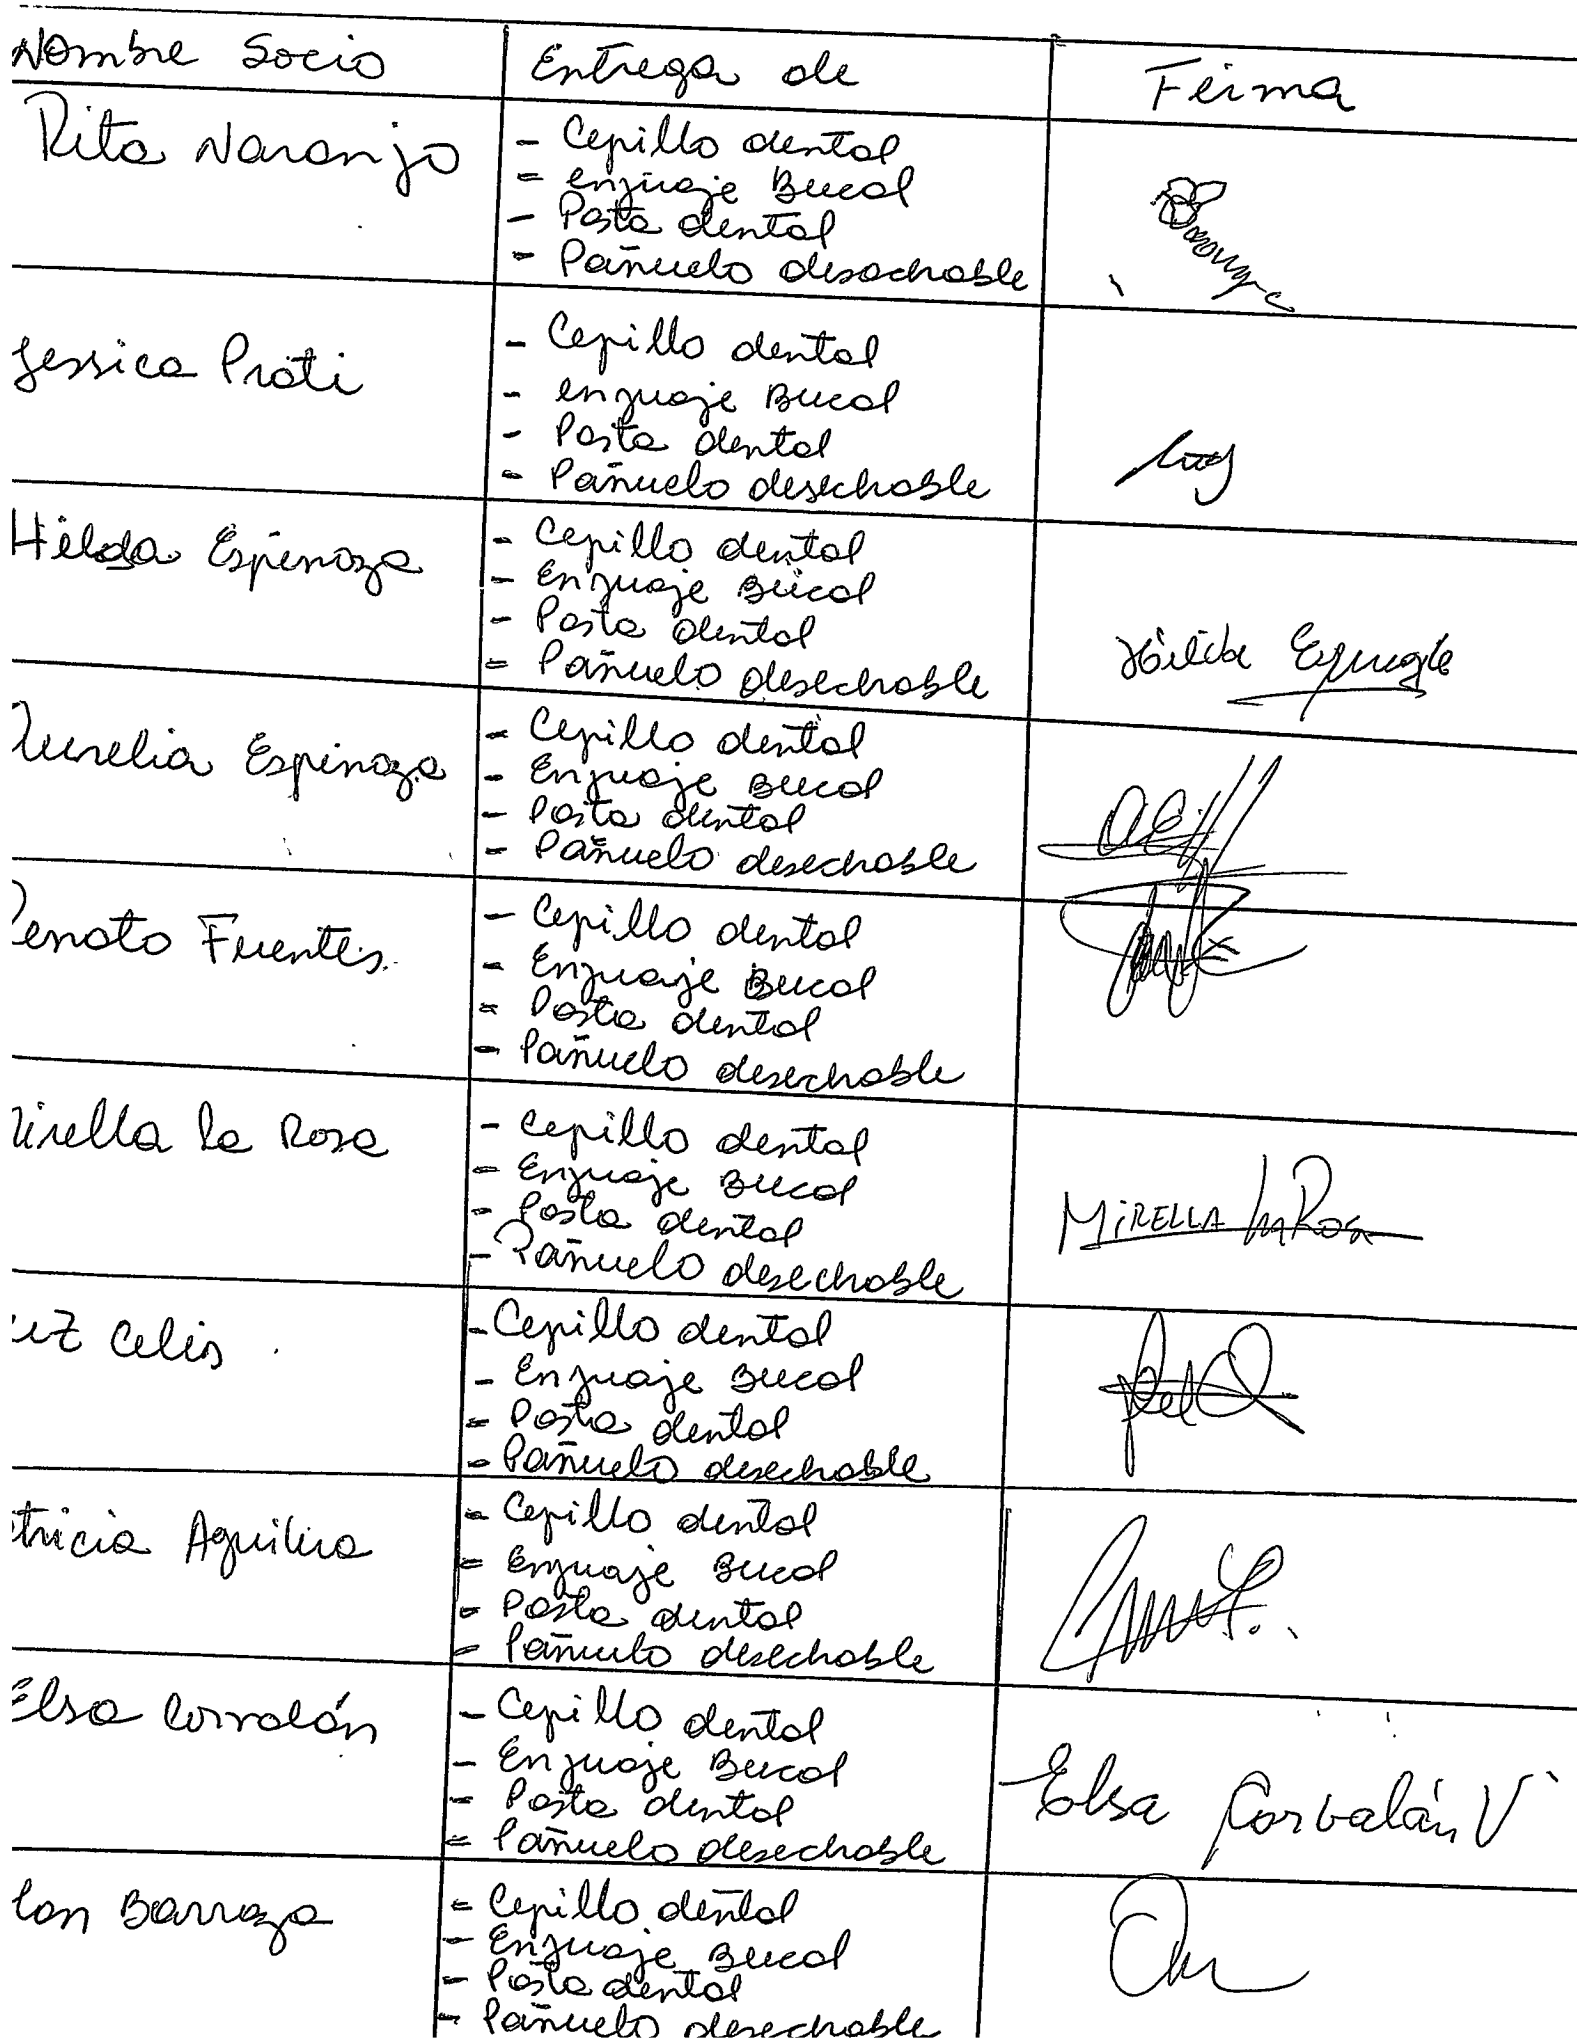 Nombre Socio Entrega de Firma
Rita Naranjo
- Cepillo dental
- enjuaje Bucal
- Pasta dental
- Pañuelo desachable
Jessica Prati
- Cepillo dental
- enjuaje Bucal
- Pasta dental
- Pañuelo desechable
Hilda Espinoza
- Cepillo dental
- Enjuaje Bucal
- Pasta dental
- Pañuelo desechable
Hilda
Aurelia Espinoza
- Cepillo dental
- Enjuaje Bucal
- Pasta dental
- Pañuelo desechable
Renato Fuentes.
- Cepillo dental
- Enjuaje Bucal
- Pasta dental
- Pañuelo desechable
irella la Rosa
- Cepillo dental
- Enjuaje Bucal
- Pasta dental
- Pañuelo desechable
MiRELLA La Rosa
uz Celis
- Cepillo dental
- Enjuaje Bucal
- Pasta dental
- Pañuelo desechable
tricia Aguilera
- Cepillo dental
- Enjuaje Bucal
- Pasta dental
- Pañuelo desechable
Elsa Corvalán
- Cepillo dental
- Enjuaje Bucal
- Pasta dental
- Pañuelo desechable
Elsa Corvalán V
lan Barraza
- Cepillo dental
- Enjuaje Bucal
- Pasta dental
- Pañuelo desechable